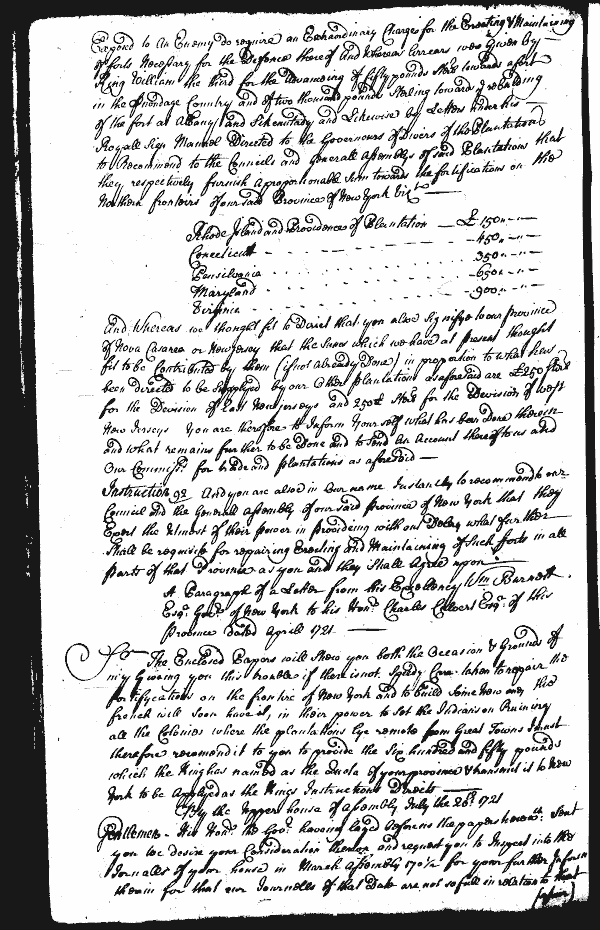 Exposed to an Enemy do require an Extraordinary Charge for the Erecting & Maintaining
of forts Necessary for the Defence thereof And Whereas Orders was Given by
King William the third for the Advanceing of fifty pounds Sterl towards a fort
in the Onondage Country and of two thousand pounds Sterling towards rebuilding
of the fort at Albany and Schenectady and Likewise by Letters under his
Royall Sign Manuel Directed to the Governours of Divers of the Plantations
to Recommend to the Councils and Generall Assemblys of said Plantations that
they respectively furnish a proportionable Sum towards the fortifications on the
Northern frontiers of our said Province of New York Vizt
Rhode Island and Providences of Plantation — £ 150 " - "
Conecticutt - - - 450 " - "
Pensilvania - - - 350 " - "
Maryland - - - 650 " - "
Virginia - - - 900 " - "
And Whereas we thought fit to Direct that you also Signifye to our province
of Nova Casarea or New Jersey that the Sums which we have at present thought
fit to be Contributed by them (if not already Done) in proportion to what hew
been directed to be Supplyed by our Other plantations as aforesaid are £250 Sterl
for the Devision of East New Jerseys and 250£ Sterl for the Devision of West
New Jerseys you are therefore to Inform Your self what has been Done therein
and what remains further to be Done and to send An Account thereof to us and
Our Commissrs for trade and plantations as aforesaid —
Instruction 92 And you are also in Our name Instantly to recommend to our
Council and the Generall assembly of our said Province of New York that they
Exert the Utmost of their power in Provideing without Delay what further
Shall be requisite for repairing Erecting and Maintaining of Such forts in all
parts of that Province as you and they Shall Agree upon
A Paragraph of a Letter from his Excellency Wm Burnett
Esqr Govr of New York to his Honr Charles Calvert Esqr of this
Province Dated Aprill 1721
Sr The Enclosed Papers will Shew you both the Occasion & Grounds of
my Giveing you this trouble if there is not Speedy Care taken to repair the
fortifycations on the frontire of New York and to build Some New ones the
french will soon have it in their power to Set the Indians on Ruining
all the Colonies where the plantations Lye remote from Great Towns I must
therefore recomend it to you to provide the Six hundred and fifty pounds
which the King has named as the Quota of your province & transmit it to New
York to be Applyed as the Kings Instructions Directs
By the Upper house of Assembly July the 28th 1721
Gentlemen – His Honr the Govr haveing layed before us the papers herewth Sent
you we desire your Consideration thereon and request you to Inspect into the
Jornalls of your house in March Assembly 1701/2 for your further Inform
therein for that our Journells of that Date are not so full in relation to that